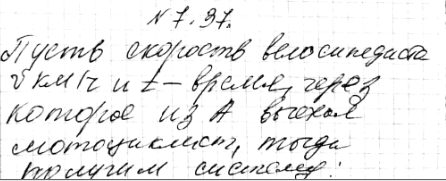 N 7.37.
Пусть скорость велосипедиста
v км/ч и t – время, через
которое из А выехал
мотоциклист, тогда
получим систему: